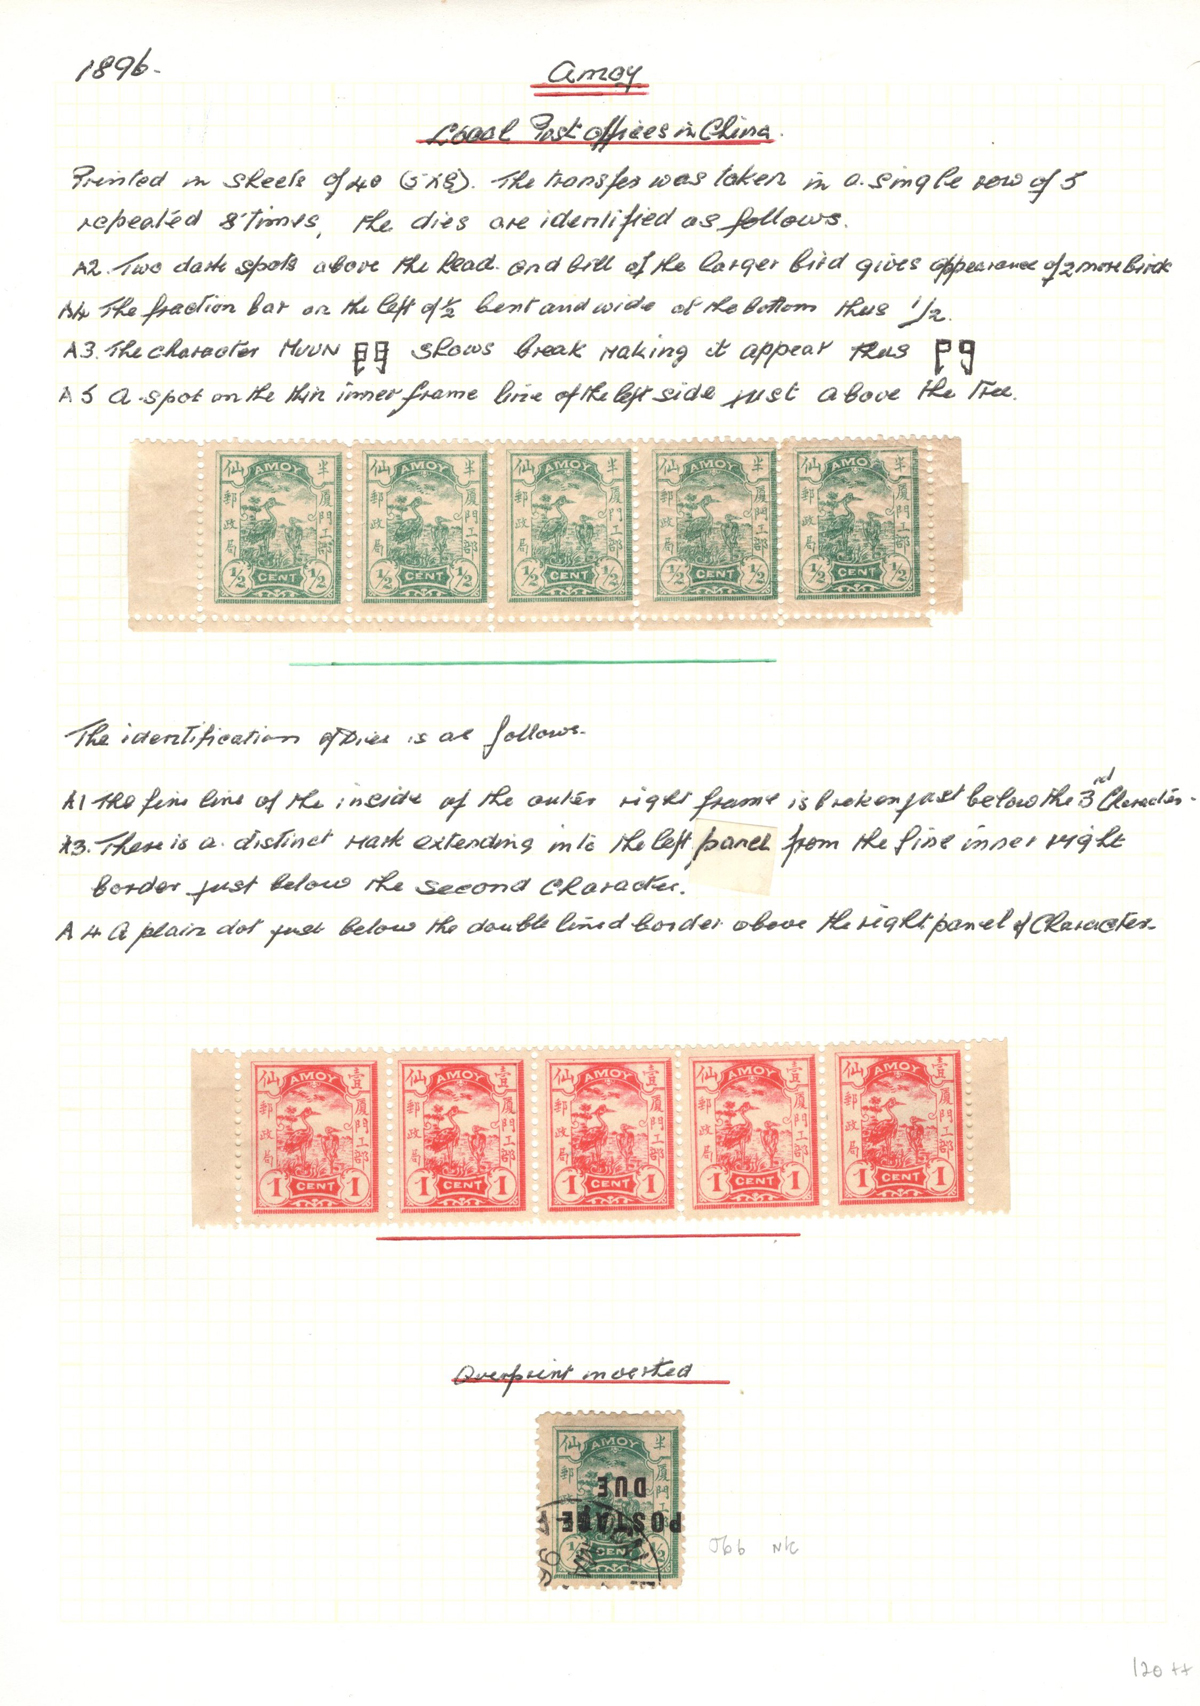 1896.
Amoy
Local Post offices in China.
Printed in sheets of 40 (5x8). The transfer was taken in a single row of 5
repeated 8 times, the dies are identified as follows.
A2. Two dark spots above the head and bill of the larger bird gives appearance of 2 more birds
A4 The fraction bar on the left of ½ bent and wide at the bottom thus 1/2.
A3. The character MUUN 門 shows break making it appear thus
A5 A spot on the thin inner frame line of the left side just above the tree.
仙 AMOY 半 仙 AMOY 半 仙 AMOY 半 仙 AMOY 半 仙 AMOY 半
郵政局 廈門工部 郵政局 廈門工部 郵政局 廈門工部 郵政局 廈門工部 郵政局 廈門工部
½ CENT ½ ½ CENT ½ ½ CENT ½ ½ CENT ½ ½ CENT ½
The identification of Dies is as follows.
A1 The fine line of the inside of the outer right frame is broken just below the 3rd Character.
A3. There is a distinct mark extending into the left panel from the fine inner right
border just below the second character.
A4 A plain dot just below the double lined border above the right panel of Character.
仙 AMOY 壹 仙 AMOY 壹 仙 AMOY 壹 仙 AMOY 壹 仙 AMOY 壹
郵政局 廈門工部 郵政局 廈門工部 郵政局 廈門工部 郵政局 廈門工部 郵政局 廈門工部
1 CENT 1 1 CENT 1 1 CENT 1 1 CENT 1 1 CENT 1
Overprint inverted
仙 AMOY 半
郵 廈門工
DUE
POSTAGE
½ CENT ½
J66 N/C
120 ++